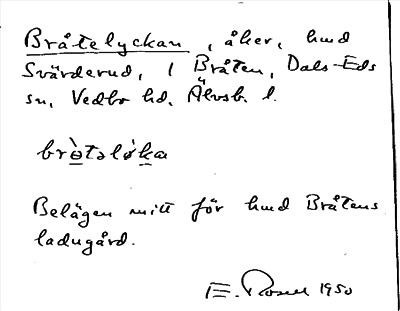 Bråtelyckan, åker, hmd
Svärderud, 1 Bråten, Dals-Eds
sn, Vedbo hd, Älvsb. l.
bròtəlók̲a
Belägen mitt för hmd Bråtens
ladugård.
E. Rosell 1950